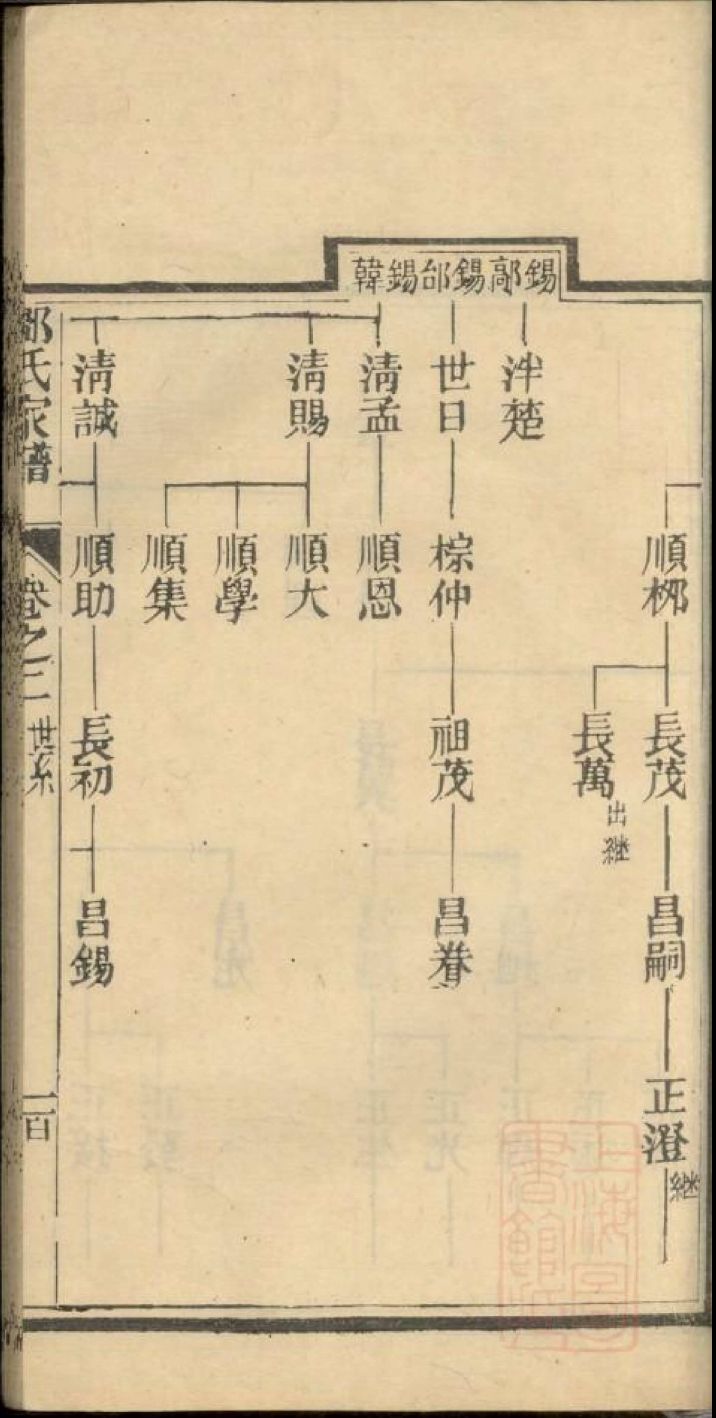 錫鄗
錫邰
錫韓
順梛
長茂
長萬 出継
昌嗣
正澄 継
泮楚
世日
棕仲
祖茂
昌眷
清孟
順恩
清賜
順大
順學
順集
清誠
順助
長初
昌錫
氏家譜
卷之二 世系
一百